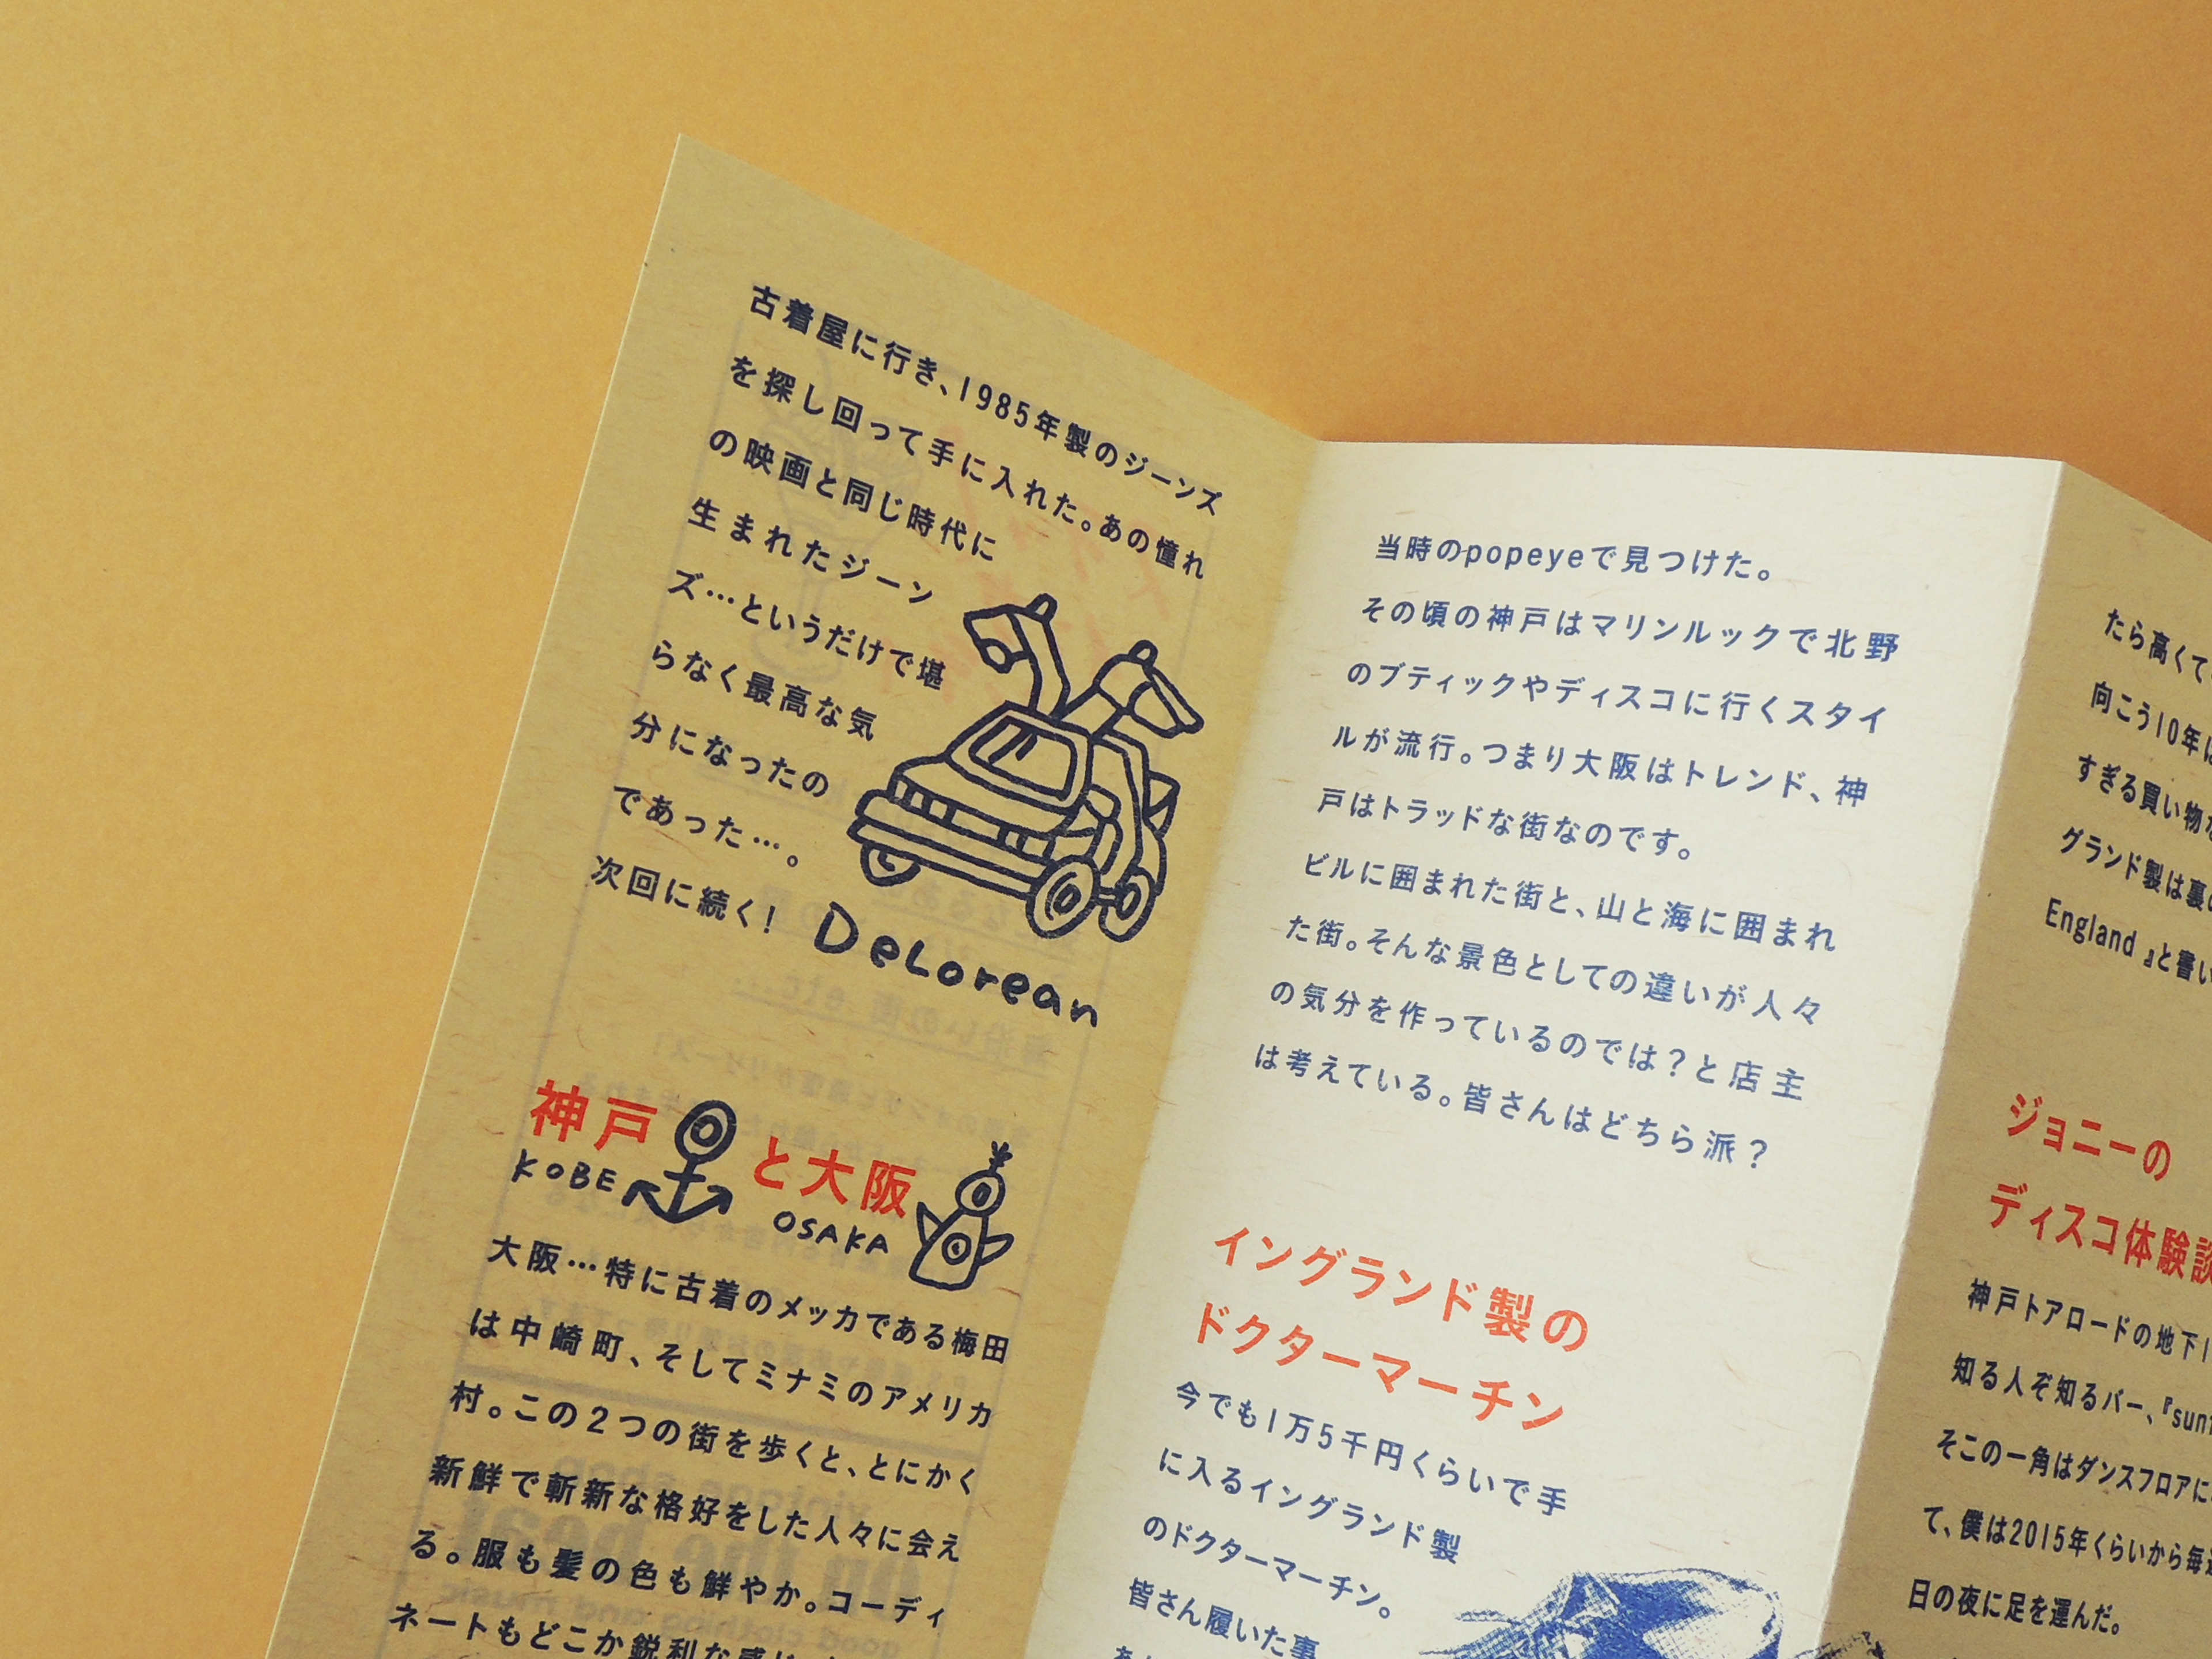 古着屋に行き、1985年製のジーンズ
を探し回って手に入れた。あの憧れ
の映画と同じ時代に
生まれたジーン
ズ…というだけで堪
らなく最高な気
分になったの
であった…。
次回に続く!
DeLorean
神戸と大阪
KOBE
OSAKA
大阪…特に古着のメッカである梅田
は中崎町、そしてミナミのアメリカ
村。この2つの街を歩くと、とにかく
新鮮で斬新な格好をした人々に会え
る。服も髪の色も鮮やか。コーディ
ネートもどこか鋭利な感じ
当時のpopeyeで見つけた。
その頃の神戸はマリンルックで北野
のブティックやディスコに行くスタイ
ルが流行。つまり大阪はトレンド、神
戸はトラッドな街なのです。
ビルに囲まれた街と、山と海に囲まれ
た街。そんな景色としての違いが人々
の気分を作っているのでは?と店主
は考えている。皆さんはどちら派?
イングランド製の
ドクターマーチン
今でも1万5千円くらいで手
に入るイングランド製
のドクターマーチン。
皆さん履いた事
たら高くて
向こう10年は
すぎる買い物
グランド製は裏
England』と書い
ジョニーの
ディスコ体験談
神戸トアロードの地下
知る人ぞ知るバー、『sun
そこの一角はダンスフロアに
て、僕は2015年くらいから毎
日の夜に足を運んだ。